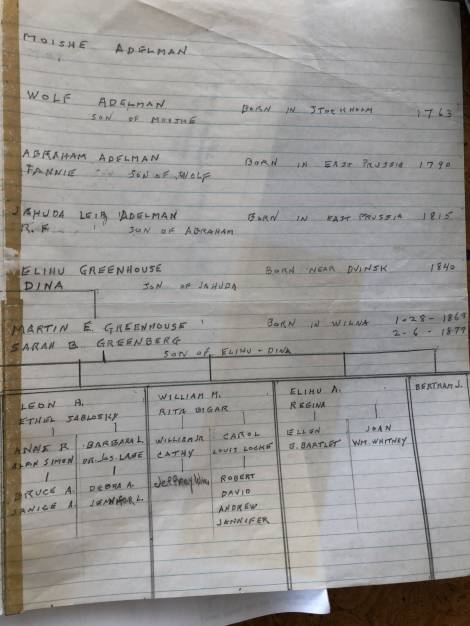 MOISHE ADELMAN
WOLF ADELMAN BORN IN STOCKHOLM 1763
SON OF MOISHE
ABRAHAM ADELMAN BORN IN EAST PRUSSIA 1790
FANNIE SON OF WOLF
JAHUDA LEIB ADELMAN BORN IN EAST PRUSSIA 1815
R.F. SON OF ABRAHAM
ELIHU GREENHOUSE BORN NEAR DVINSK 1840
DINA SON OF JAHUDA
MARTIN E. GREENHOUSE BORN IN WILNA 1-28-1863
SARAH B. GREENBERG 2-6-1877
SON OF ELIHU - DINA
LEON H.
ETHEL JABLOSKY
ANNE R.
ALAN SIMON
BRUCE A.
JANICE A.
BARBARA L.
DR. JOS. LABE
DEBRA A.
JENNIFER L.
WILLIAM M.
RITA BIGAR
WILLIAM JR
CATHY
Jeffrey Wm.
CAROL
LOUIS LOCKE
ROBERT
DAVID
ANDREW
JENNIFER
ELIHU A.
REGINA
ELLEN
B. BARTLET
JOAN
WM. WHITNEY
BERTRAM J.